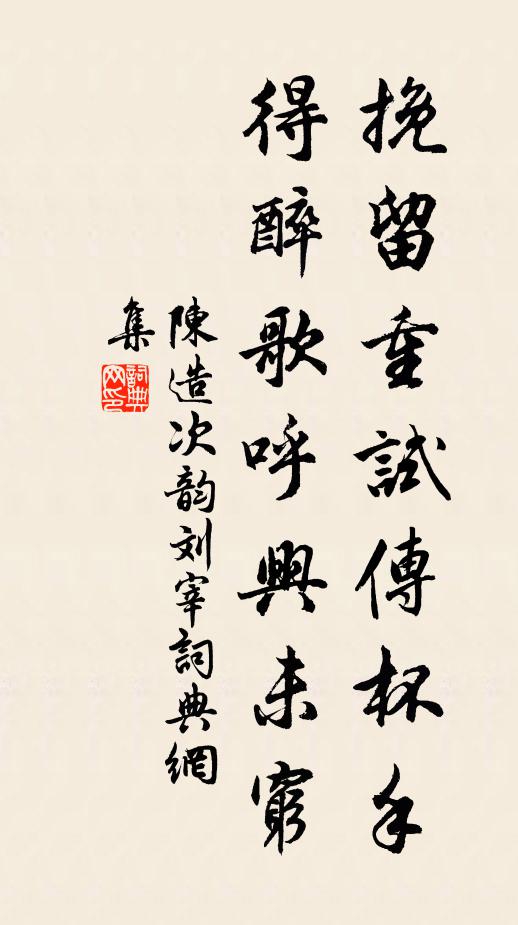 挽留重試傳杯手
得醉歌呼興未窮
陳造次韵刘宰詞典網
集
詞典网印